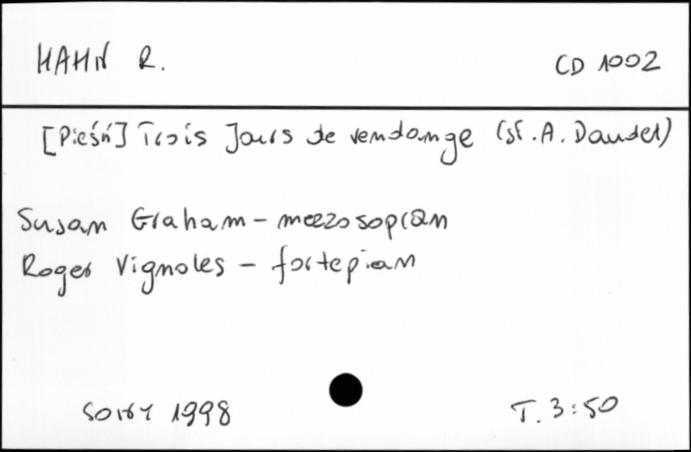 HAHN R. CD 1002
[Pieśń] Trois Jours de vendange (sł. A. Daudet)
Susan Graham - mezzosopran
Roger Vignoles - fortepian
SONY 1998 T. 3:50